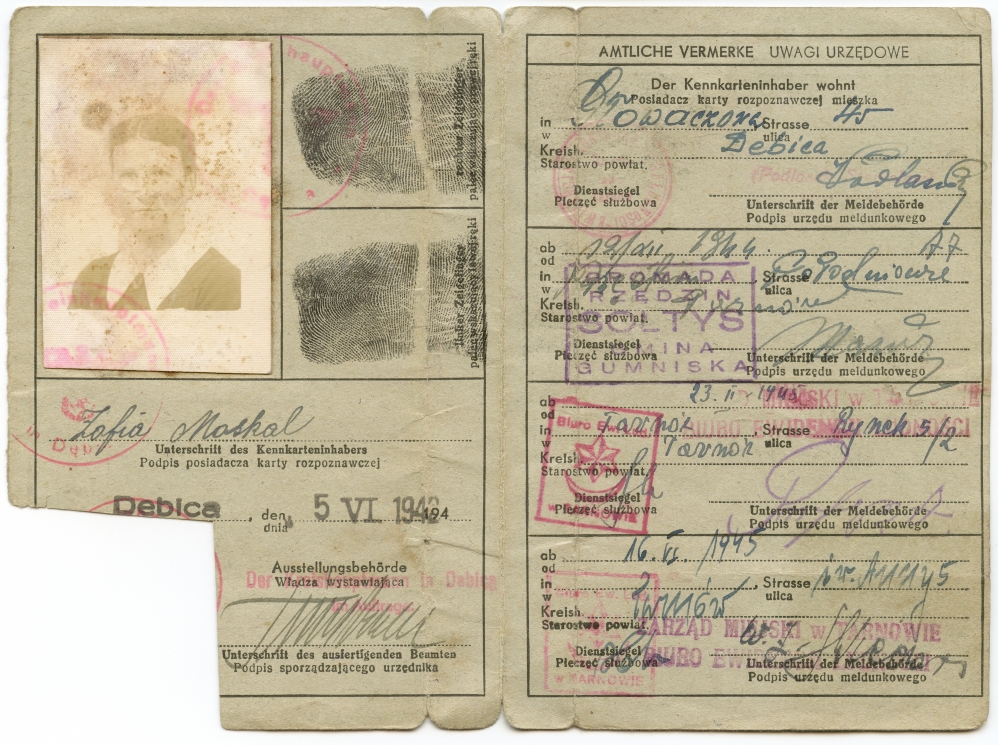 haup
rechter Zeigefinger
palec wskazujący prawej ręki
linker Zeigefinger
palec wskazujący lewej ręki
Zofia Moskal
Unterschrift des Kennkarteninhabers
Podpis posiadacza karty rozpoznawczej
in Dęb
Debica , den 5 VI. 1942 194
dnia
Ausstellungsbehörde
Władza wystawiająca
Der in Debica
Im Auftrage
Unterschrift des ausfertigenden Beamten
Podpis sporządzającego urzędnika
AMTLICHE VERMERKE UWAGI URZĘDOWE
Der Kennkarteninhaber wohnt
Posiadacz karty rozpoznawczej mieszka
in , Strasse 45
w ulica
Kreish. Debica
Starostwo powiat.
Dienstsiegel Unterschrift der Meldebehörde
Pieczęć służbowa Podpis urzędu meldunkowego
ab 1944
od
in Strasse
w ulica
Kreish.
Starostwo powiat.
GROMADA
RZĘDZIN
SOŁTYS
GMINA
GUMNISKA
Dienstsiegel Unterschrift der Meldebehörde
Pieczęć służbowa Podpis urzędu meldunkowego
ab 23. II 1945
od
in Tarnów , Strasse Rynek 5/2
w ulica
Kreish. Tarnów
Starostwo powiat.
MIEJSKI w
BIURO
Biuro Ewid. Lud.
w TARNOWIE
Dienstsiegel Unterschrift der Meldebehörde
Pieczęć służbowa Podpis urzędu meldunkowego
ab 16. VI. 1945
od
in , Strasse św. Anny 5
w ulica
Kreish. Tarnów
Starostwo powiat.
ZARZĄD MIEJSKI w TARNOWIE
BIURO
w TARNOWIE
Dienstsiegel Unterschrift der Meldebehörde
Pieczęć służbowa Podpis urzędu meldunkowego